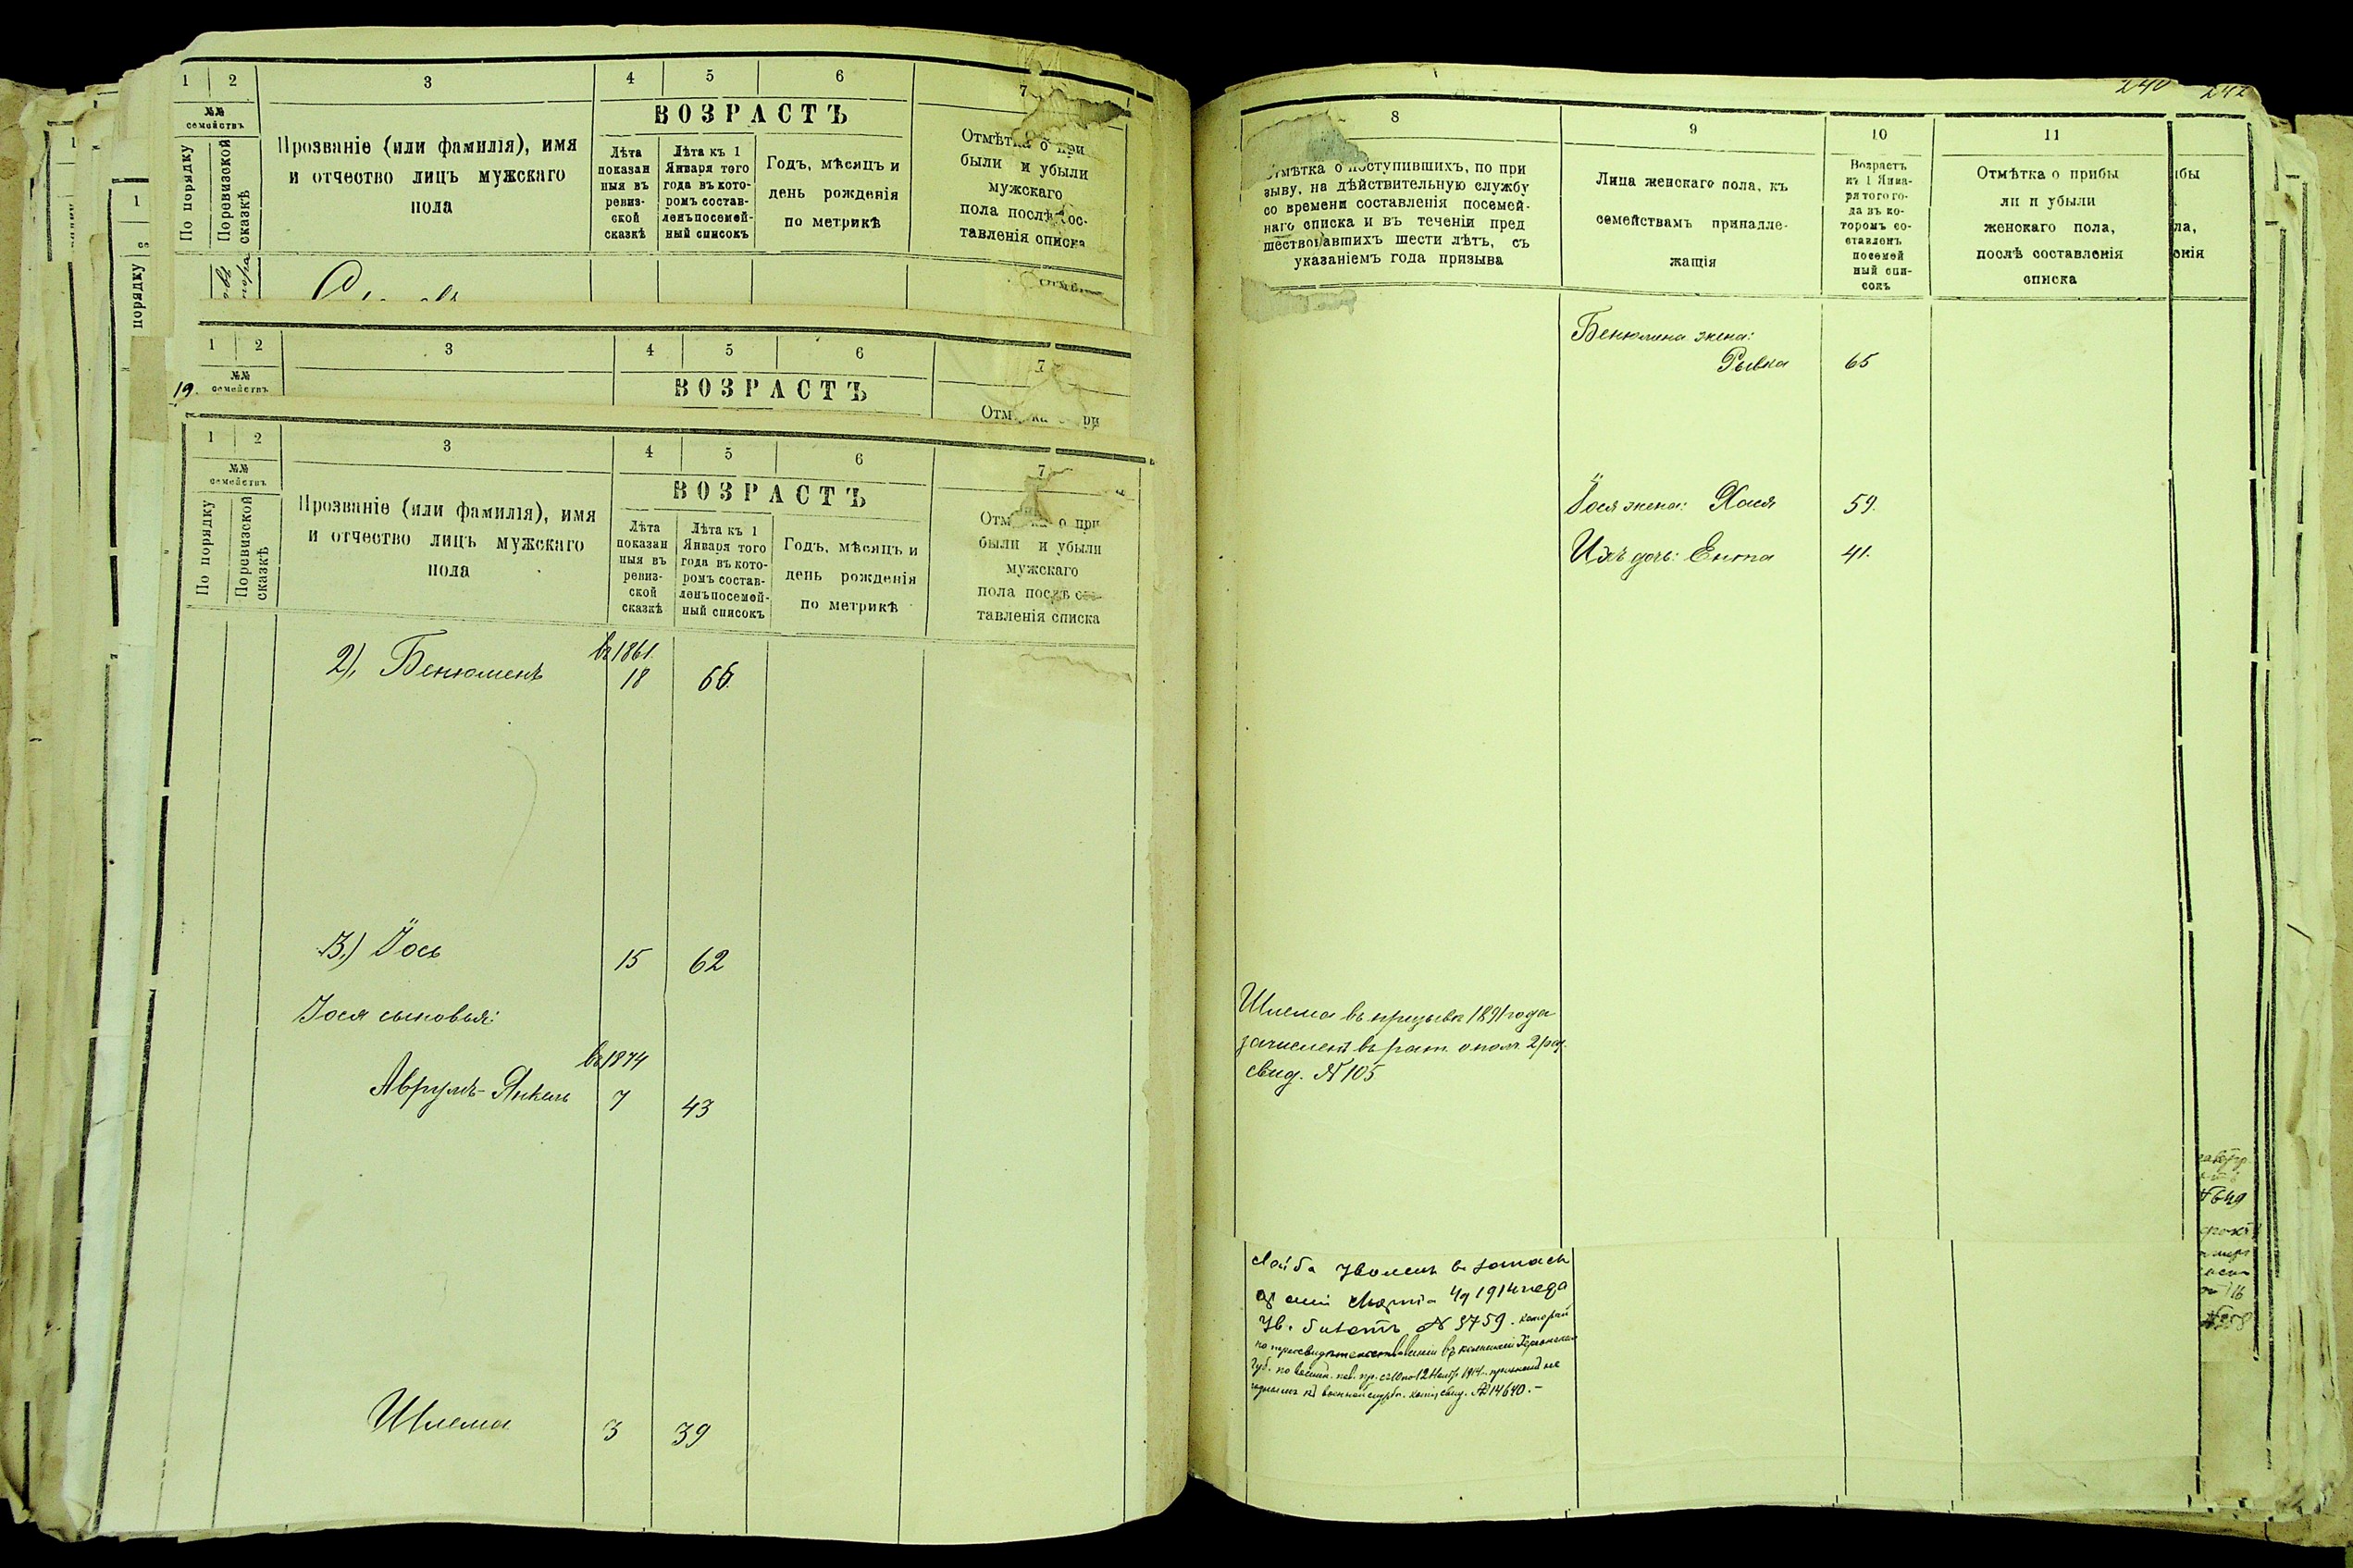 1 2 3 4 5 6 7
№№ семействъ
По порядку
По ревизской сказкѣ
Прозваніе (или фамилія), имя
и отчество лицъ мужскаго
пола
ВОЗРАСТЪ
Лѣта
показан
ныя въ
ревиз-
ской
сказкѣ
Лѣта къ 1
Января того
года въ кото-
ромъ состав-
ленъ посемей-
ный списокъ
Годъ, мѣсяцъ и
день рожденія
по метрикѣ
Отмѣтка о при
были и убыли
мужскаго
пола послѣ сос-
тавленія списка
1 2 3 4 5 6 7
№№
семействъ
19.
ВОЗРАСТЪ
1 2 3 4 5 6 7
№№
семействъ
По порядку
По ревизской
сказкѣ
Прозваніе (или фамилія), имя
и отчество лицъ мужскаго
пола
ВОЗРАСТЪ
Лѣта
показан
ныя въ
ревиз-
ской
сказкѣ
Лѣта къ 1
Января того
года въ кото-
ромъ состав-
ленъ посемей-
ный списокъ
Годъ, мѣсяцъ и
день рожденія
по метрикѣ
о при
были и убыли
мужскаго
пола послѣ сос-
тавленія списка
въ 1861.
2), Бенюменъ 18 66.
3.) Іось 15 62
Іося сыновья:
въ 1874
Аврумъ-Янкель 7 43
Шлема 3 39
240
242
8 9 10 11
Отмѣтка о поступившихъ, по при
зыву, на дѣйствительную службу
со времени составленія посемей-
наго списка и въ теченіи пред
шествовавшихъ шести лѣтъ, съ
указаніемъ года призыва
Лица женскаго пола, къ
семействамъ принадле-
жащія
Возрастъ
къ 1 Янва-
ря того го-
да въ ко-
торомъ со-
ставленъ
посемей
ный спи-
сокъ
Отмѣтка о прибы
ли и убыли
женскаго пола,
послѣ составленія
списка
Бенюмина жена:
Рывка 65
Іося жена: Хася 59.
Ихъ дочь: Ента 41.
Шлема въ призывѣ 1891 года
зачисленъ въ рат. ополч. 2 раз.
свид. № 105
Лейба уволенъ въ запасъ
арміи 1914 года
ув. билетъ № 3759. который
по
Губ. по воинск. пов. 12 1914 признанъ не
годнымъ къ военной службѣ. свид. № 14640.-
№ 649